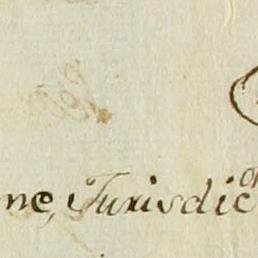 ne, Jurisdic^on